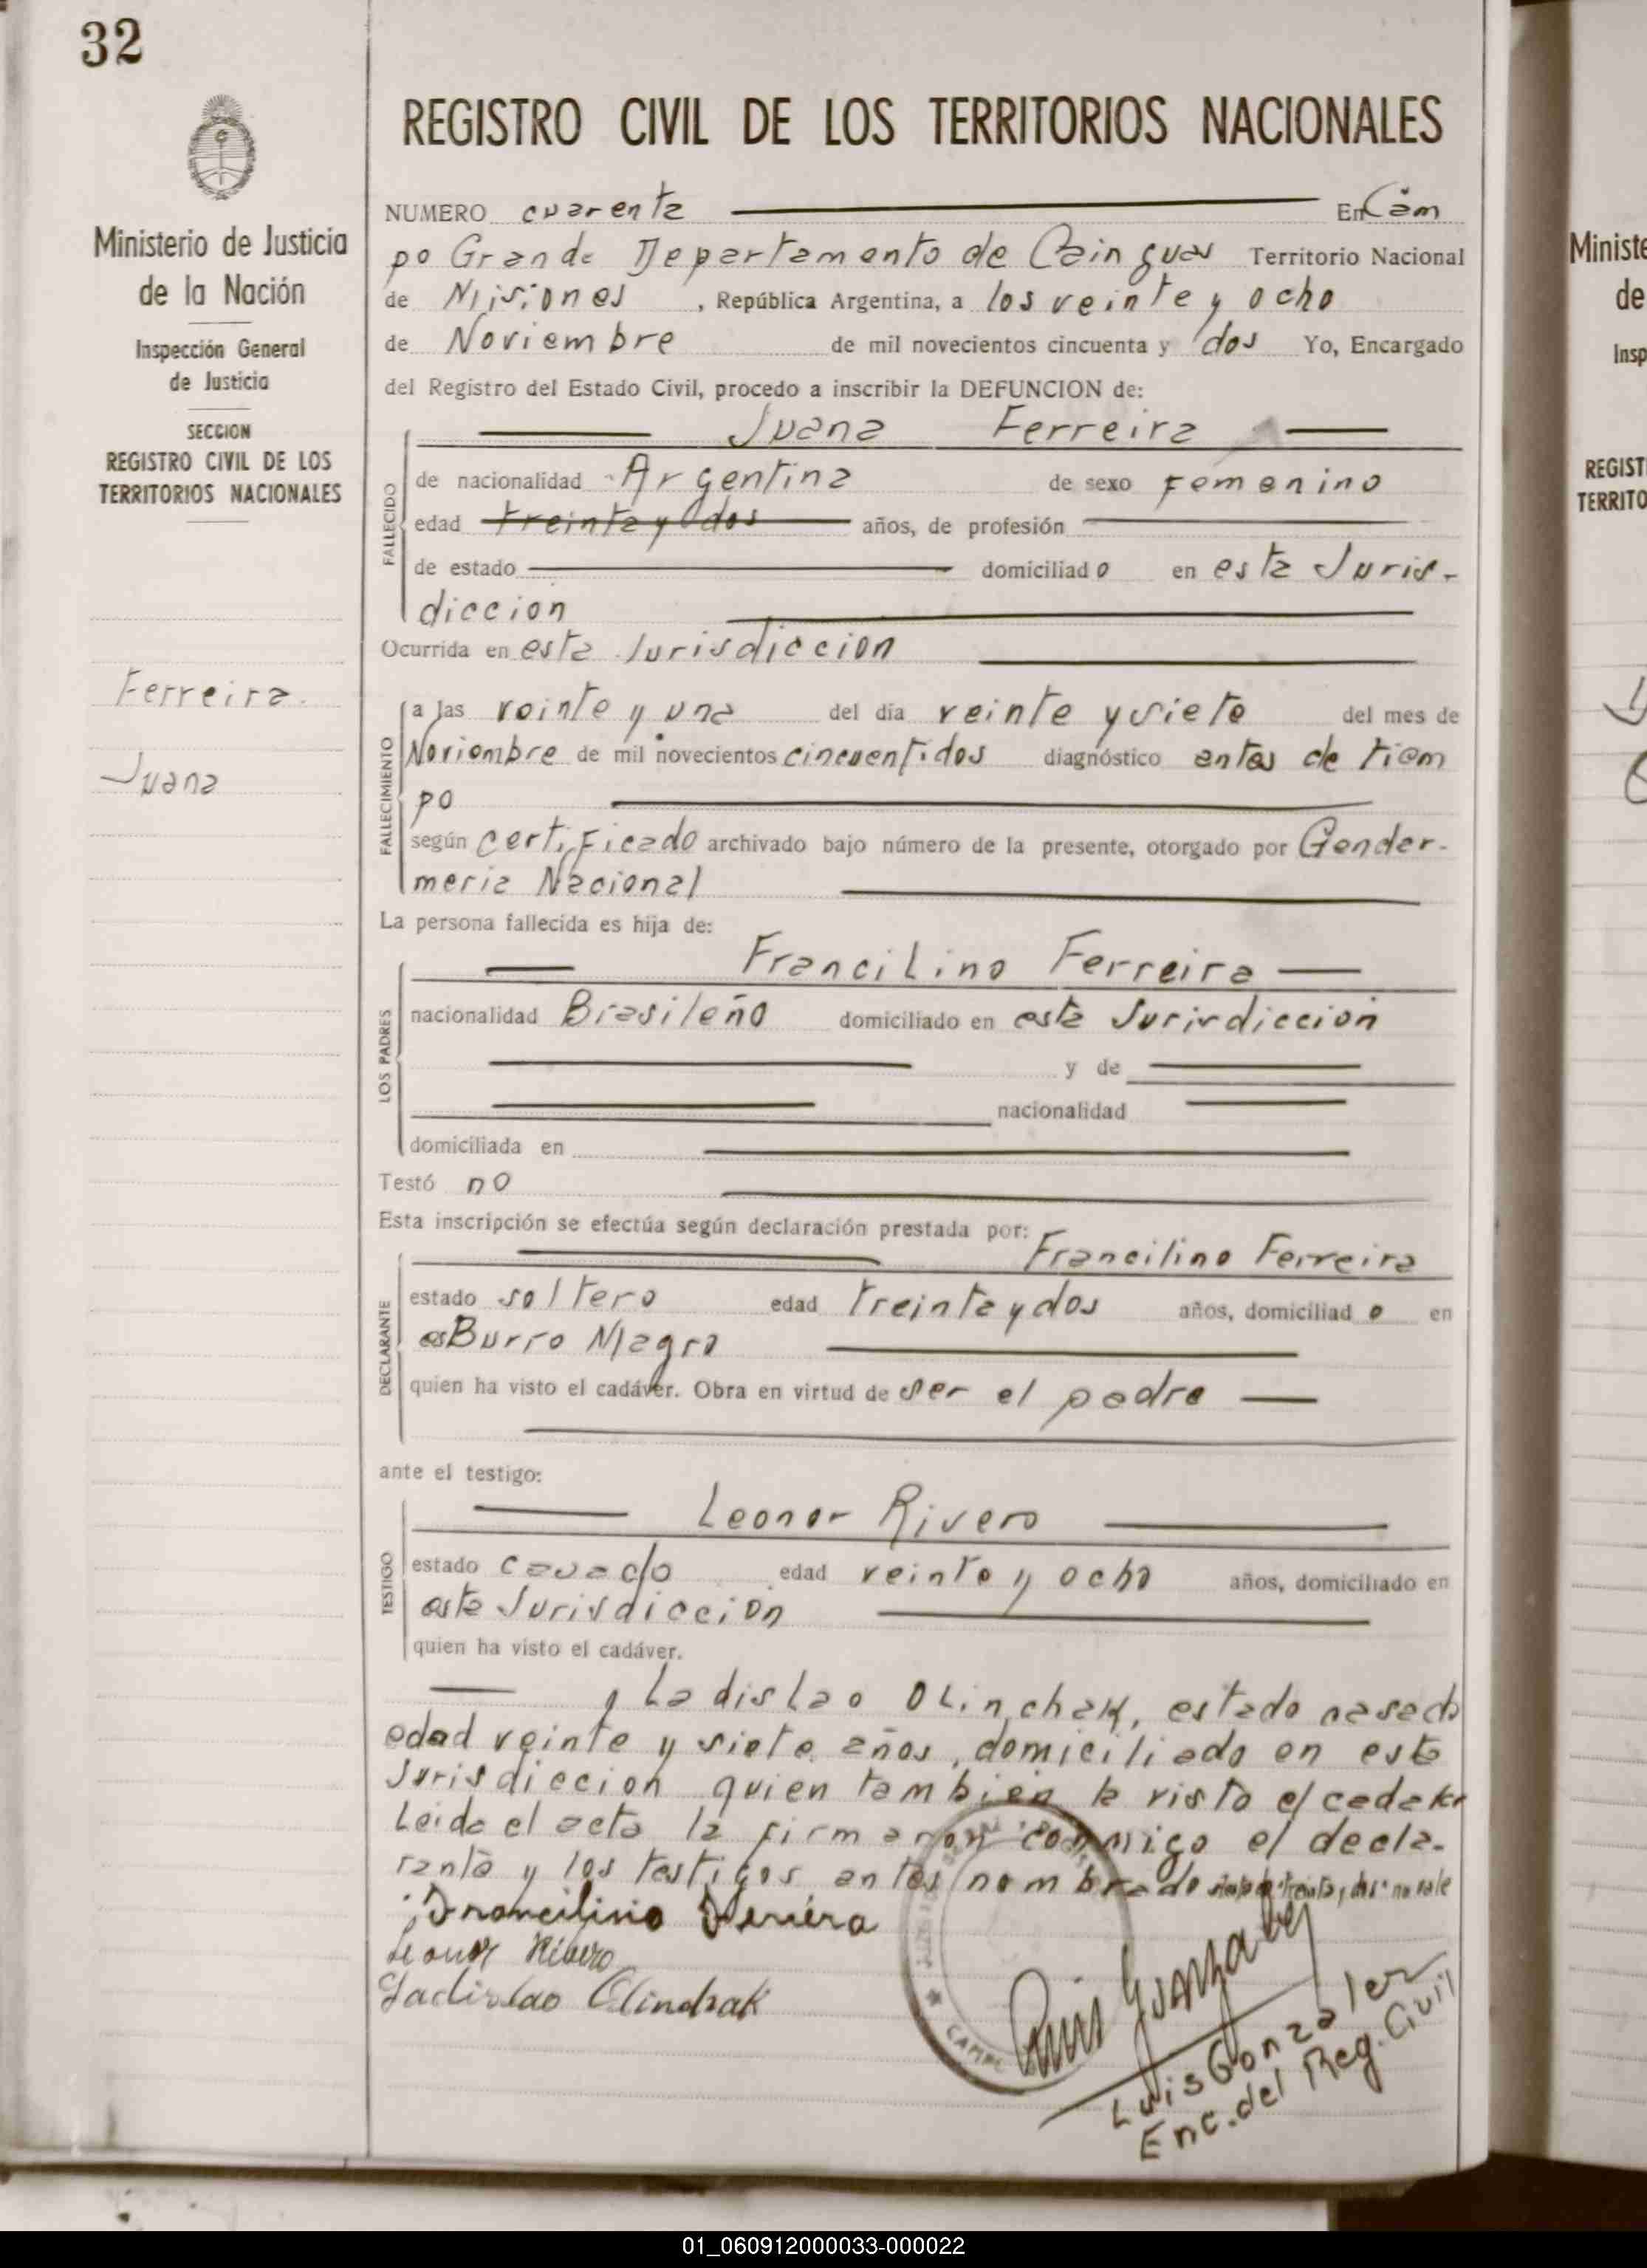 32
Ministerio de Justicia
de la Nación
Inspección General
de Justicia
SECCION
REGISTRO CIVIL DE LOS
TERRITORIOS NACIONALES
Ferreira.
Juana
REGISTRO CIVIL DE LOS TERRITORIOS NACIONALES
NUMERO cuarenta En Cam
po Grande Departamento de Cainguas Territorio Nacional
de Misiones, República Argentina, a los veinte y ocho
de Noviembre de mil novecientos cincuenta y dos Yo, Encargado
del Registro del Estado Civil, procedo a inscribir la DEFUNCION de:
Juana Ferreira
FALLECIDO
de nacionalidad Argentina de sexo Femenino
edad treinta y dos años, de profesión
de estado domiciliado en esta Juris-
diccion
Ocurrida en esta Jurisdiccion
FALLECIMIENTO
a las veinte y una del día veinte y siete del mes de
Noviembre de mil novecientos cincuentidos diagnóstico antes de tiem
po
según certificado archivado bajo número de la presente, otorgado por Gender-
meria Nacional
La persona fallecida es hija de:
LOS PADRES
Francilino Ferreira
nacionalidad Brasileño domiciliado en esta Jurisdiccion
y de
nacionalidad
domiciliada en
Testó no
Esta inscripción se efectúa según declaración prestada por:
Francilino Ferreira
DECLARANTE
estado soltero edad treinta y dos años, domiciliado en
Burro Magro
quien ha visto el cadáver. Obra en virtud de ser el padre
ante el testigo:
TESTIGO
Leonor Rivero
estado casado edad veinte y ocho años, domiciliado en
esta Jurisdiccion
quien ha visto el cadáver.
y Ladislao OLinchak, estado casado
edad veinte y siete años, domiciliado en esta
Jurisdiccion quien tambien ha visto el
Leida el acta la firmaron conmigo el decla-
rante y los testigos antes nombrado treinta y dos no vale
Francilino Feriera
Leonor Rivero
Ladislao Olinchak
CAMPO
Luis Gonzalez
Luis Gonzalez
Enc. del Reg. Civil
Ministe
de
Insp
REGIST
TERRITO
01_060912000033-000022